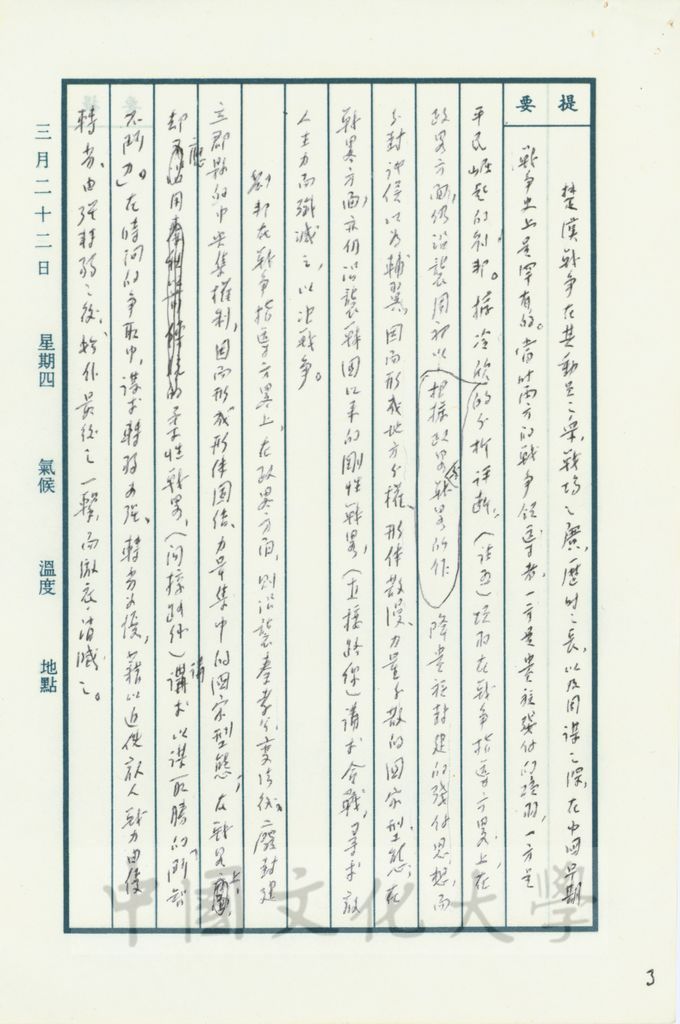 提要
楚漢戰爭在其動員之眾,戰場之廣,歷時之長,以及用謀之深,在中國早期
戰爭史上是罕有的。當時兩方的戰爭領導者,一方是貴族後代的項羽,一方是
平民崛起的劉邦。據冷欣的分析評斷,項羽在戰爭指導方略上,在
政略方面,仍沿襲周初以降貴族封建的殘餘思想,而
把握政略戰略的作
分封諸侯以為輔翼,因而形成地方分權、形体散漫、力量分散的國家型態,在
戰略方面,亦仍沿襲戰國以來的剛性戰略,(直接路線)講求会戰,尋求敵
人主力而殲滅之,以決戰爭。
劉邦在戰爭指導方略上,在政略方面,則沿襲秦孝公變法後,廢封建
立郡縣的中央集權制,因而形成形体團結、力量集中的國家型態,在戰略上,
却應用的柔性戰略,(間接路線)講求以謀取勝的「鬥智
不鬥力」。在時間的爭取中,謀求轉弱為強、轉劣為優,藉以迫使敵人戰力由優
轉劣、由強轉弱之後,始作最後之一擊,而徹底消滅之。
三月二十二日 星期四 氣候 溫度 地點
中國文化大學
3